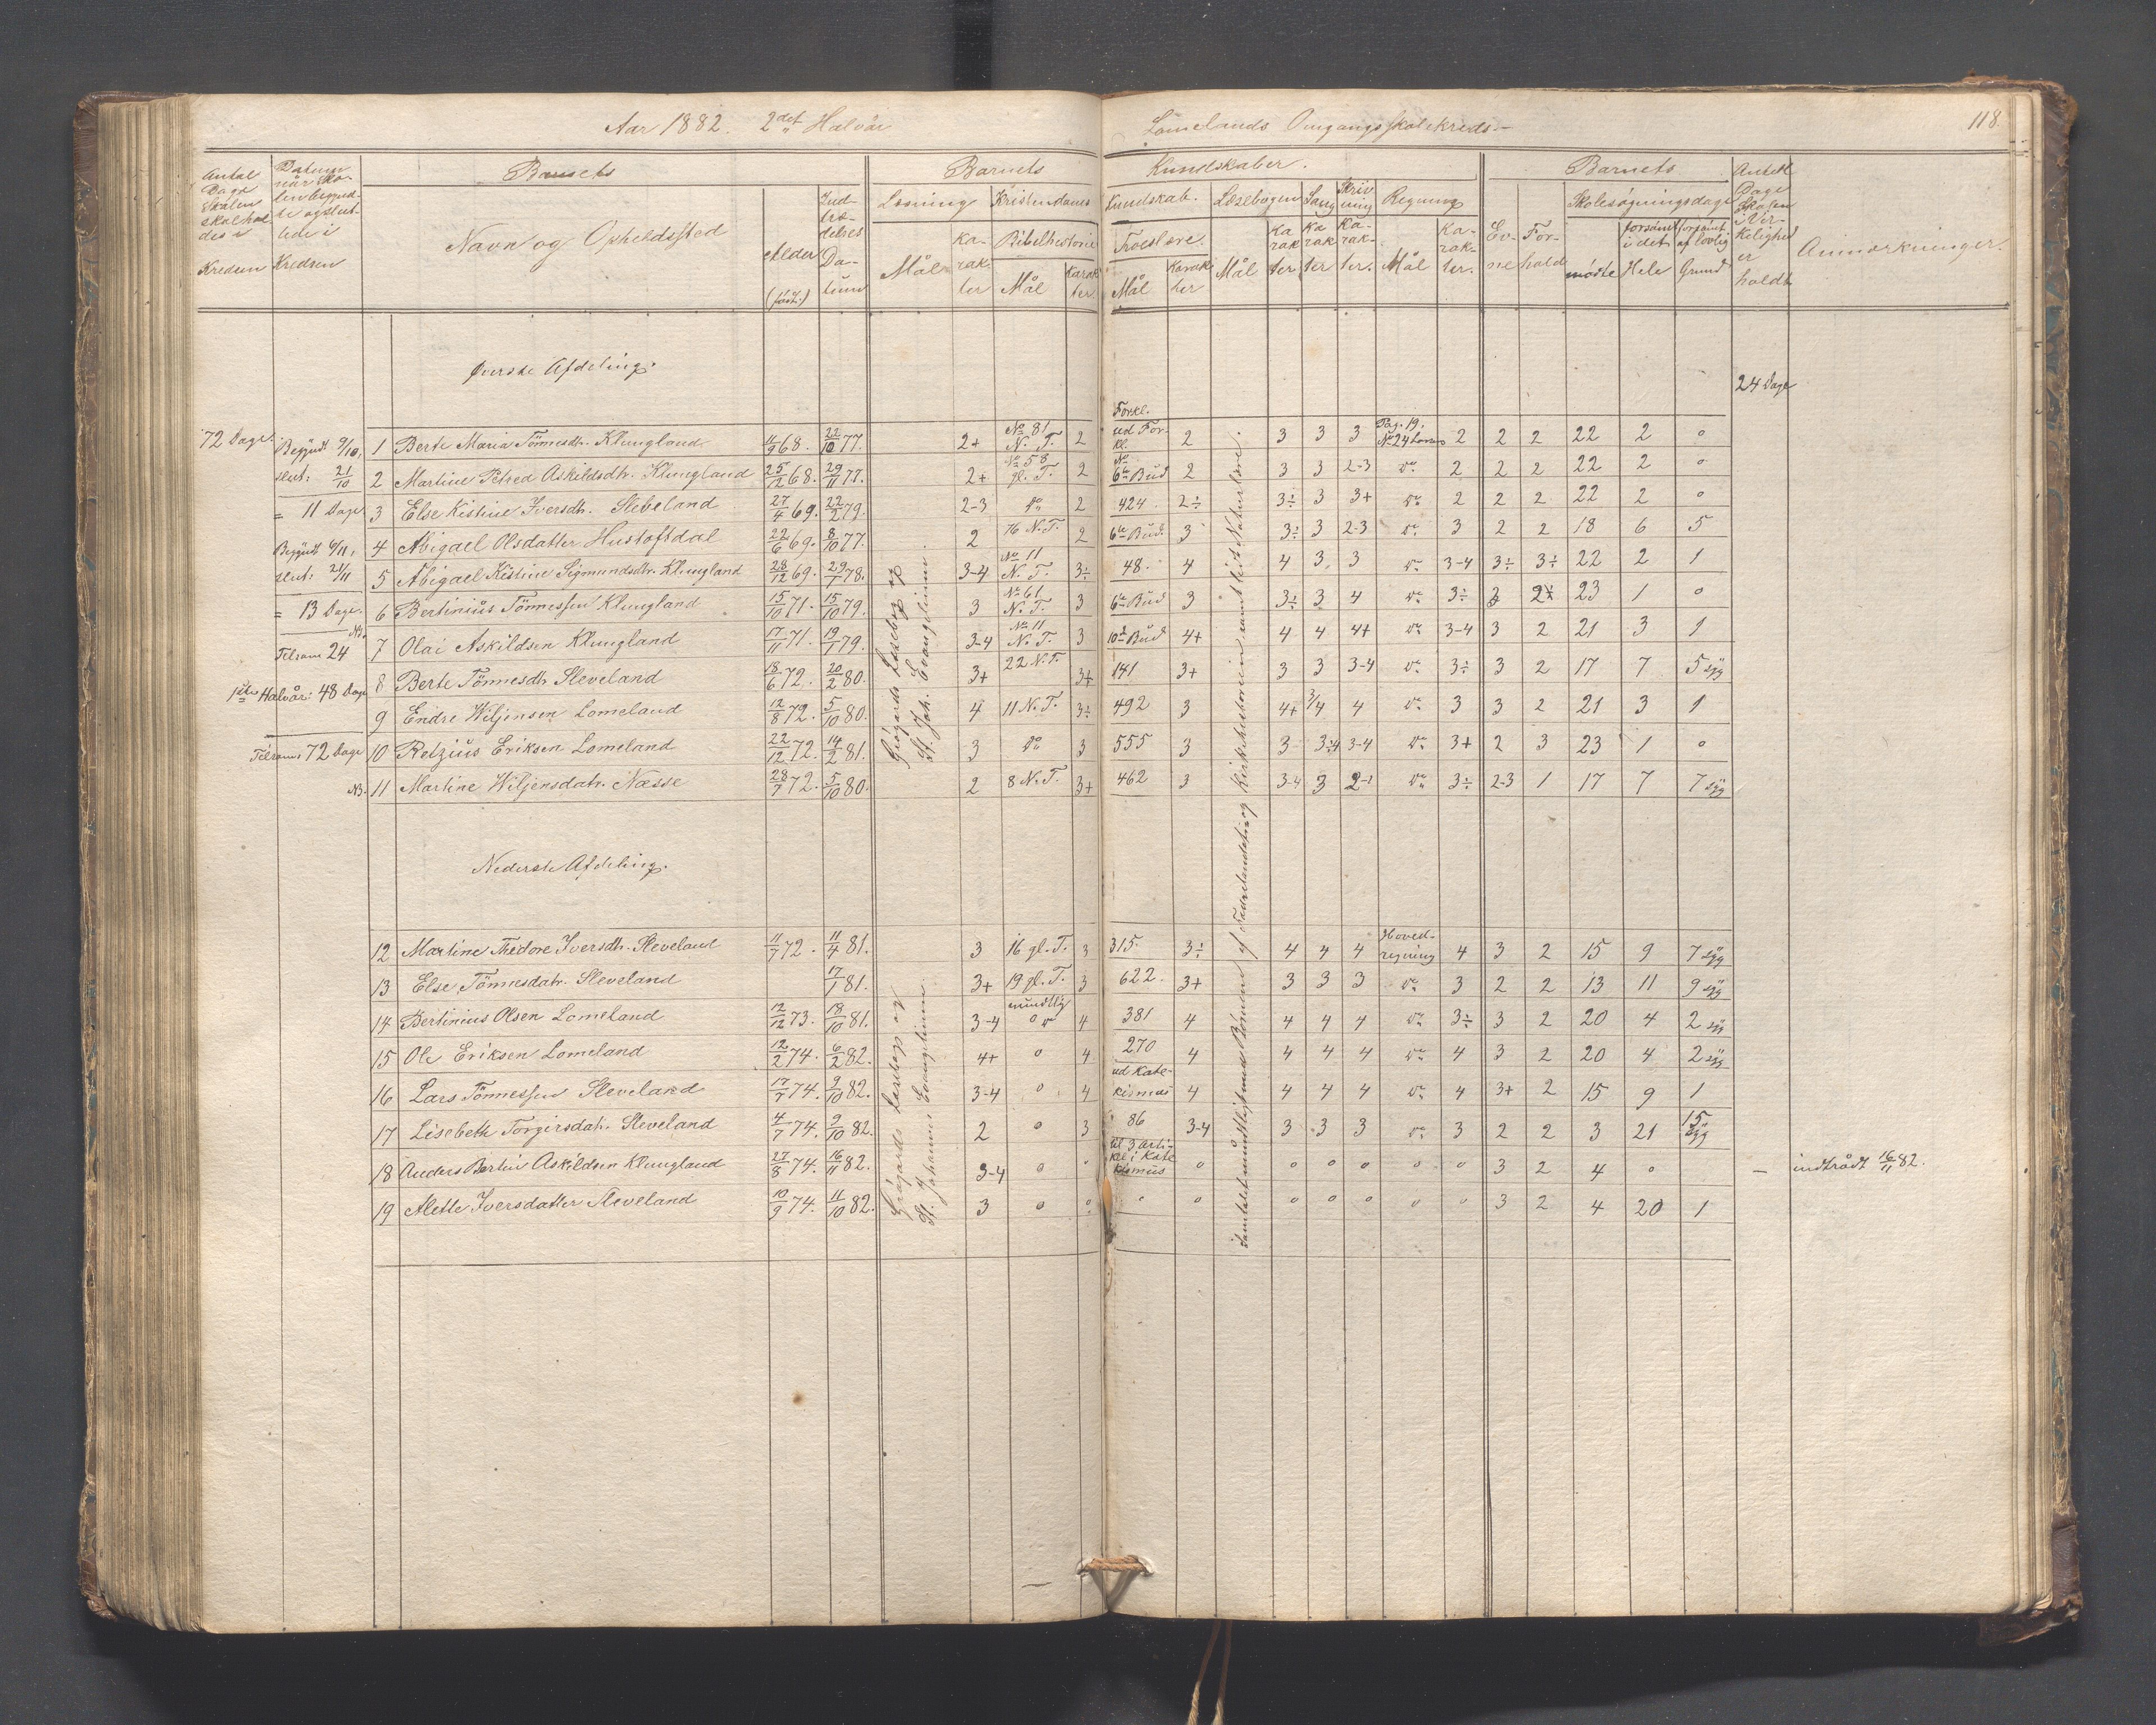 Aar 1882. 2det Halvår
Lomelands Omgangsskolekreds.
118.
Antal Dage Skolen skal holdes i Kredsen
Datum når Skolen begyndte og sluttede i Kredsen
Barnets
Navn og Opholdssted
Alder (født.)
Indtrædelses Datum
Barnets Kundskaber.
Læsning
Mål
Karakter
Kristendoms Kundskab.
Bibelhistorie
Mål
Karakter
Troeslære.
Mål
Karakter
Læsebogen
Mål
Karakter
Sang
Karakter
Skrivning
Karakter.
Regning
Mål
Karakter.
Barnets
Evne
Forhold
Skolesøgningsdage
mødte
forsømt i det Hele
forsømt af lovlig Grund
Antal Dage Skolen i Virkelighed er holdt
Anmærkninger.
Øverste Afdeling.
24 Dage
72 Dage.
Begyndt 9/10.
slut: 21/10
= 11 Dage
Begyndt 6/11.
slut: 21/11
= 13 Dage.
NB.
Tilsam 24
1ste Halvår: 48 Dage
Tilsam: 72 Dage
NB.
1 Berte Maria Tönnesdtr. Klungland 11/9 68. 22/10 77. 2+ No 81 N. T. 2 Forkl. ud Forkl. 2 3 3 3 Pag. 19. No 24 2 2 2 22 2 0
2 Martine Petred Askildsdtr. Klungland 25/12 68. 29/11 77. 2+ No 58 gl. T. 2 No 6te Bud 2 3 3 2-3 do 2 2 2 22 2 0
3 Else Kistine Iversdtr. Sleveland 27/4 69. 22/2 79. 2-3 do 2 424 2÷ 3÷ 3 3+ do 2 2 2 22 2 0
4 Abigael Olsdatter Hustoftdal 22/6 69. 8/10 77. 2 76 N.T. 2 6te Bud. 3 3÷ 3 2-3 do 3 2 2 18 6 5
5 Abigael Kistine Sigmundsdtr. Klungland 28/12 69. 29/1 78. 3-4 No 11 N. T. 3÷ 48. 4 4 3 3 do 3-4 3÷ 3÷ 22 2 1
6 Bertinius Tönnessen Klungland 15/10 71. 15/10 79. 3 No 61 N. T. 3 6te Bud 3 3÷ 3 4 do 3÷ 3 2 23 1 0
7 Olai Askildsen Klungland 17/11 71. 19/1 79. 3-4 No 11 N. T. 3 10de Bud 4+ 4 4 4+ do 3-4 3 2 21 3 1
8 Berte Tönnesdtr. Sleveland 18/6 72. 20/2 80. 3+ 22 N.T. 3+ 141 3+ 3 3 3-4 do 3÷ 3 2 17 7 5 syg
9 Endre Wiljensen Lomeland 12/8 72. 5/10 80. 4 11 N.T. 3÷ 492 3 4+ 3/4 4 do 3 3 2 21 3 1
10 Retzius Eriksen Lomeland 22/12 72. 14/2 81. 3 do 3 555 3 3 3÷4 3-4 do 3+ 2 3 23 1 0
11 Martine Wiljensdatr. Næsse 28/7 72. 5/10 80. 2 8 N.T. 3+ 462 3 3-4 3 2-1 do 3÷ 2-3 1 17 7 7 syg
Grågårds Læsebog og St. Joh. Evangelium.
Nederste Afdeling.
12 Martine Thedore Iversdtr. Sleveland 11/7 72. 11/4 81. 3 16 gl. T. 3 315. 3÷ 4 4 4 Hovedregning 4 3 2 15 9 7 syg
13 Else Tönnesdatr. Sleveland 17/1 81. 3+ 19 gl. T. 3 622. 3+ 3 3 3 do 3 2 2 13 11 9 syg
14 Bertinius Olsen Lomeland 12/12 73. 18/10 81. 3-4 mundtlig 4 381 4 4 4 4 do 3÷ 3 2 20 4 2 syg
15 Ole Eriksen Lomeland 12/2 74. 6/2 82. 4+ 0 4 270 4 4 4 4 do 4 3 2 20 4 2 syg
16 Lars Tönnessen Sleveland 17/7 74. 9/10 82. 3-4 0 4 ud Katekismus 4 4 4 4 do 4 3+ 2 15 9 1
17 Lisebeth Torgirsdatr. Sleveland 4/7 74. 9/10 82. 2 0 3 86 3-4 3 3 3 do 3 2 2 3 21 15 syg
18 Anders Bertin Askildsen Klungland 27/8 74. 16/11 82. 3-4 0 0 til 3 Artikel i Katekismus 0 0 0 0 0 0 3 2 4 0 – indtrådt 16/11 82.
19 Alette Iversdatter Sleveland 10/9 74. 11/10 82. 3 0 0 0 0 0 0 0 0 0 3 2 4 20 1
Grågårds Læsebog og St. Johannes Evangelium.
Samtalet mundtligt med Börnene af Fædrelandshistorie og Kirkehistorien samt lidt Naturlære.